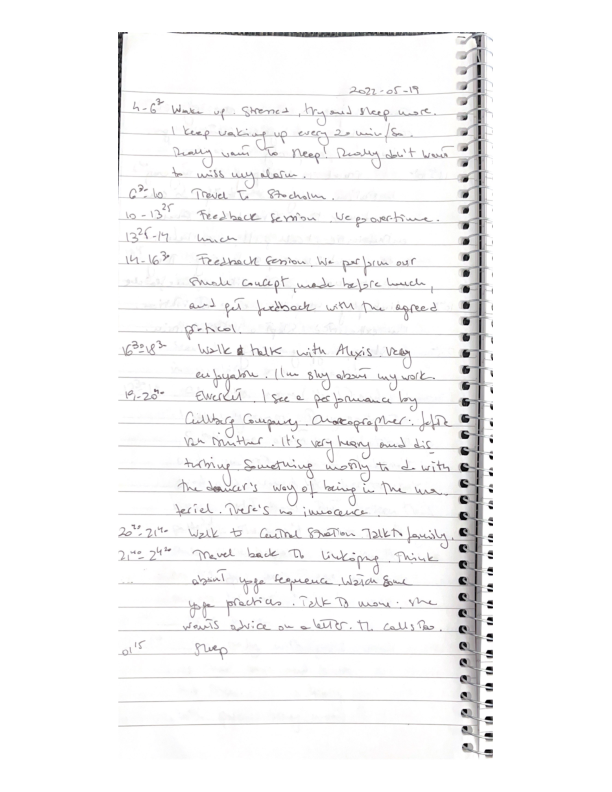 2022-05-19
4-6³⁰ Wake up stressed, try and sleep more.
I keep waking up every 20 min/so.
Really want to sleep! Really don't want
to miss my alarm.
6³⁰-10 Travel to Stocholm.
10-13²⁵ Feedback session. We go overtime.
13²⁵-14 lunch
14-16³⁰ Feedback session. We perform our
small concept, made before lunch,
and get feedback with the agreed
protocol.
16³⁰-18³⁰ Walk & talk with Alexis. Very
enjoyable. I'm shy about my work.
19-20²⁰ Elverket. I see a performance by
Cullberg Company. Choreographer: Jefta
van Dinther. It's very heavy and dis-
turbing. Something mostly to do with
the dancer's way of being in the ma-
terial. There's no innocence.
20²⁰-21⁴⁰ Walk to Central Station. Talk to family.
21⁴⁰-24²⁰ Travel back to Linköping. Think
about yoga sequence. Watch some
yoga practices. Talk to mom. She
wants advice on a letter. calls
01¹⁵ Sleep